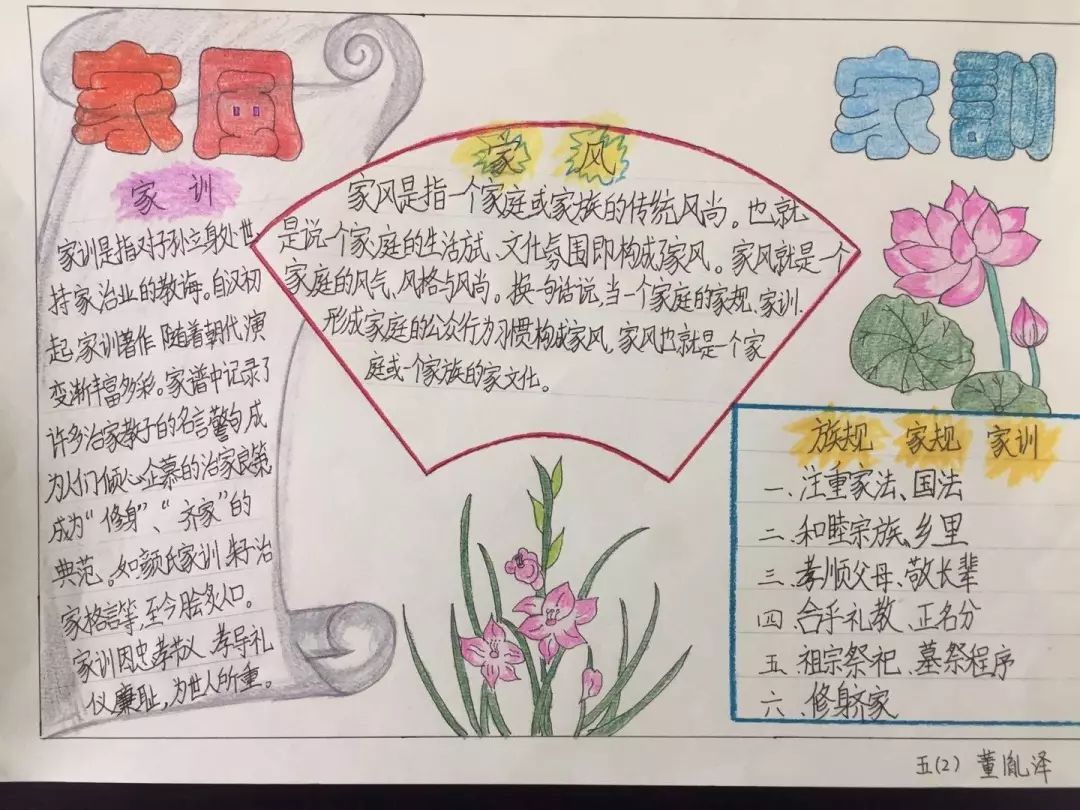 家风
家訓
家训
家训是指对子孙立身处世
持家治业的教诲。自汉初
起,家训著作随着朝代演
变渐丰富多彩。家谱中记录了
许多治家教子的名言警句,成
为人们倾心企慕的治家良策,
成为“修身”、“齐家”的
典范。如颜氏家训,朱子治
家格言等,至今脍炙人口。
家训因忠孝节义、孝导礼
仪廉耻,为世人所重。
家风
家风是指一个家庭或家族的传统风尚。也就
是说一个家庭的生活方式、文化氛围即构成了家风。家风就是一个
家庭的风气、风格与风尚。换一句话说,当一个家庭的家规、家训、
形成家庭的公众行为习惯构成家风,家风也就是一个家
庭或一个家族的家文化。
族规 家规 家训
一、注重家法、国法
二、和睦宗族、乡里
三、孝顺父母、敬长辈
四、合乎礼教、正名分
五、祖宗祭祀、墓祭程序
六、修身齐家
五(2) 董胤泽